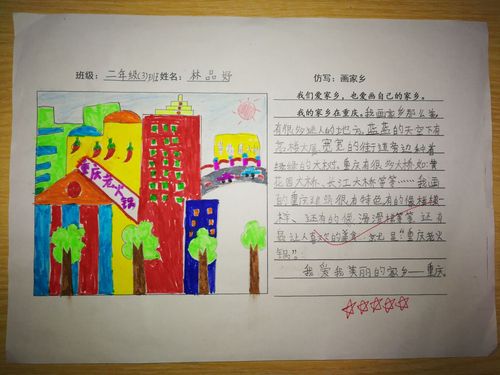 班级：二年级(3)班 姓名：林品妤
仿写：画家乡
我们爱家乡，也爱画自己的家乡。
我的家乡在重庆。我画的家乡那么美，
有很多迷人的地方。蓝蓝的天空下有
高楼大厦，宽宽的街道旁边种着
绿绿的大树。重庆有很多大桥，如：黄
花园大桥、长江大桥等等……我画
的重庆建筑很有特色，有的像楼梯
一样，还有的像滑滑梯等等，还有
最让人喜欢的美食，就是“重庆老火
锅”。
我爱我美丽的家乡——重庆。
重庆老火锅